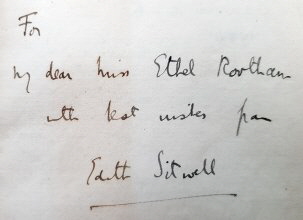 For
my dear Miss Ethel Rootham
with best wishes from
Edith Sitwell